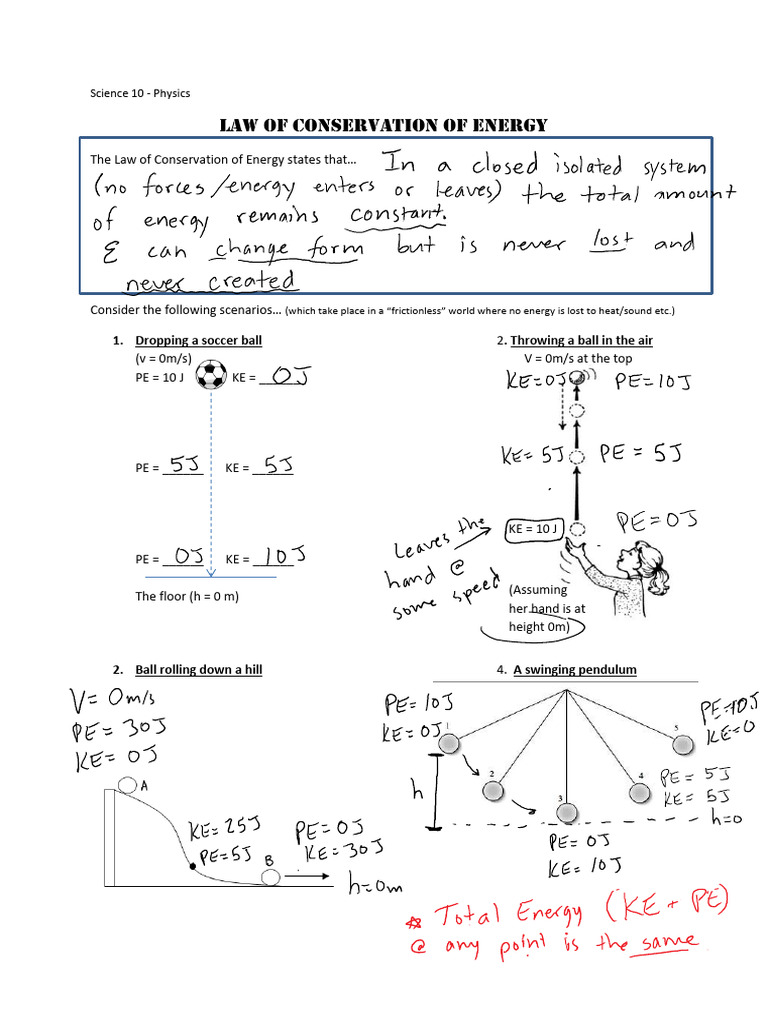 Science 10 - Physics
LAW OF CONSERVATION OF ENERGY
The Law of Conservation of Energy states that... In a closed isolated system
(no forces/energy enters or leaves) the total amount
of energy remains constant.
E can change form but is never lost and
never created
Consider the following scenarios... (which take place in a "frictionless" world where no energy is lost to heat/sound etc.)
1. Dropping a soccer ball
(v = 0m/s)
PE = 10 J KE = 0J
PE = 5J KE = 5J
PE = 0J KE = 10J
The floor (h = 0 m)
2. Throwing a ball in the air
V = 0m/s at the top
KE=0J PE=10J
KE= 5J PE = 5J
KE = 10 J PE=0J
Leaves the
hand @
some speed
(Assuming
her hand is at
height 0m)
2. Ball rolling down a hill
V= 0m/s
PE= 30J
KE= 0J
A
KE= 25J
PE=5J
B
PE= 0J
KE= 30J
h=0m
4. A swinging pendulum
PE= 10J
KE= 0J
1
2
3
4
5
PE=10J
KE=0
PE = 5J
KE= 5J
h
h=0
PE= 0J
KE= 10J
* Total Energy (KE + PE)
@ any point is the same